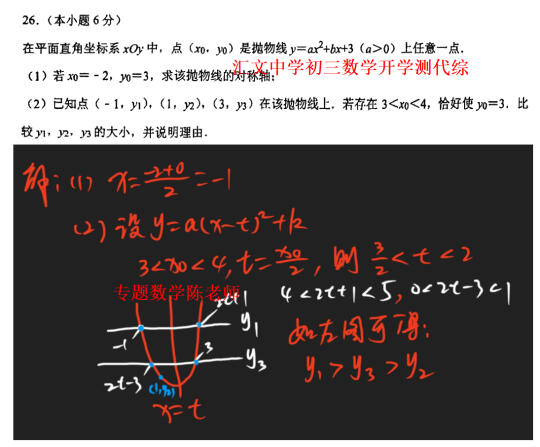 26.（本小题6分）
在平面直角坐标系xOy中，点（x₀，y₀）是抛物线y=ax²+bx+3（a>0）上任意一点.
（1）若x₀=－2，y₀=3，求该抛物线的对称轴；
汇文中学初三数学开学测代综
（2）已知点（－1，y₁），（1，y₂），（3，y₃）在该抛物线上．若存在3<x₀<4，恰好使y₀=3．比
较y₁，y₂，y₃的大小，并说明理由．
解：(1) x=(-2+0)/2=-1
(2) 设 y=a(x-t)²+k
3<x₀<4, t=x₀/2, 则 3/2<t<2
专题数学陈老师
4<2t+1<5, 0<2t-3<1
2t+1
y₁
-1
3
y₃
2t-3
(1,y₂)
x=t
如左图可得：
y₁>y₃>y₂